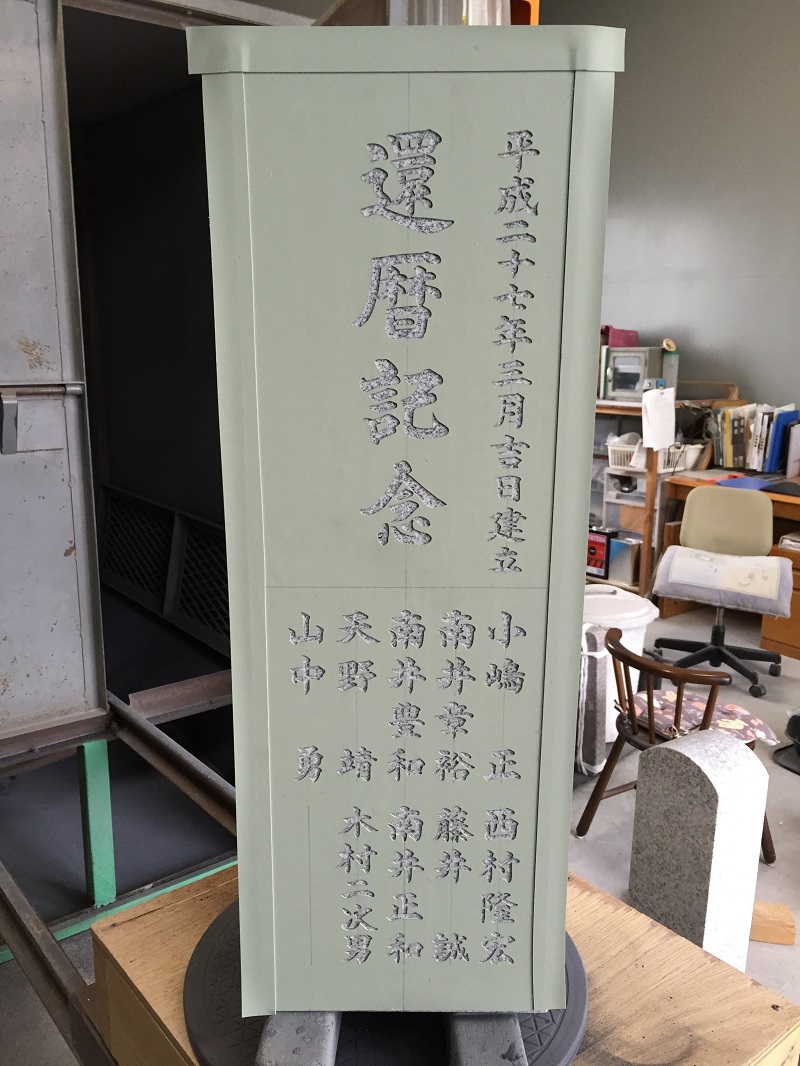 平成二十七年三月吉日建立
還暦記念
小嶋 正
南井章裕
南井豊和
天野 靖
山中 勇
西村隆宏
藤井 誠
南井正和
木村二次男